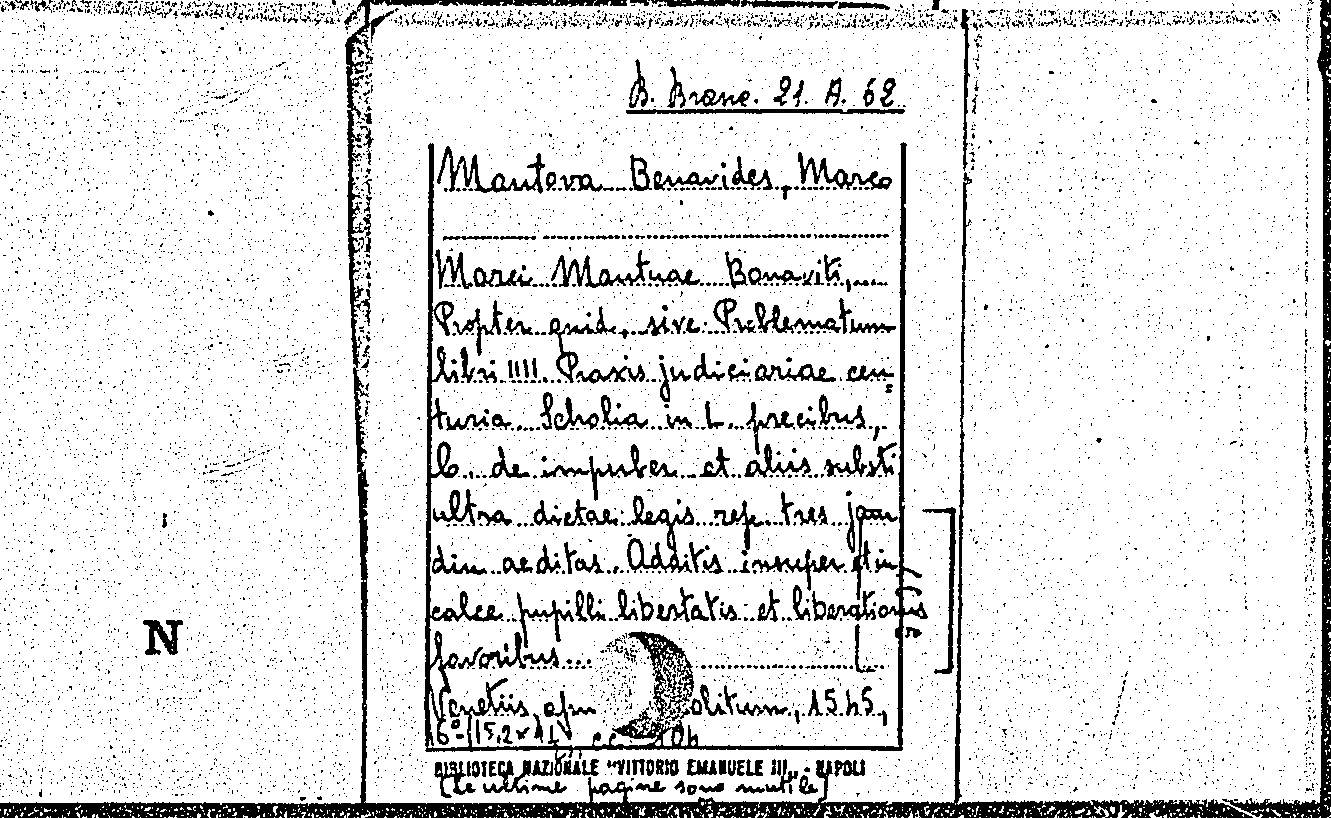 B. Branc. 21. A. 62
Mantova Benavides, Marco
Marci Mantuae Bonaviti,....
Propter quid, sive Problematum
libri IIII. Praxis judiciariae cen=
turia. Scholia in L. precibus,
C. de impuber et aliis substi
ultra dictae legis rep. tres jam
diu aeditas. Additis insuper et in
calce pupilli libertatis et liberationis
favoribus...
N
Venetiis, apu olitum, 1545,
16°-(15,2x
BIBLIOTECA NAZIONALE "VITTORIO EMANUELE III" - NAPOLI
(Le ultime pagine sono mutile)